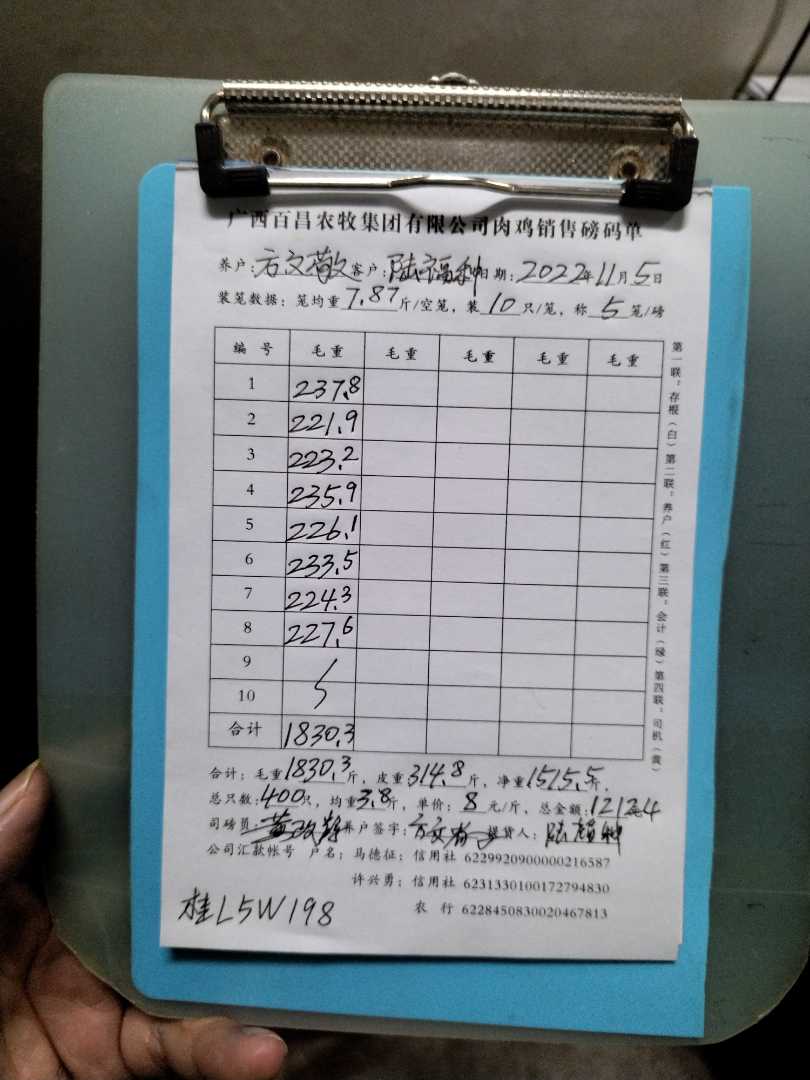 广西百昌农牧集团有限公司肉鸡销售磅码单
养户:方文敬客户:陆福种日期:2022年11月5日
装笼数据:笼均重7.87斤/空笼,装10只/笼,称5笼/磅
编号 毛重 毛重 毛重 毛重 毛重
1 237.8
2 221.9
3 223.2
4 235.9
5 226.1
6 233.5
7 224.3
8 227.6
9
10
合计 1830.3
合计:毛重1830.3斤,皮重:314.8斤,净重1515.5斤.
总只数:400只,均重3.8斤,单价:8元/斤,总金额:12124
司磅员: 养户签字: 提货人:陆福种
公司汇款帐号 户名:马德征:信用社 6229920900000216587
许兴勇:信用社 6231330100172794830
农行 6228450830020467813
桂L5W198
第一联:存根(白)第二联:养户(红)第三联:会计(绿)第四联:司机(黄)